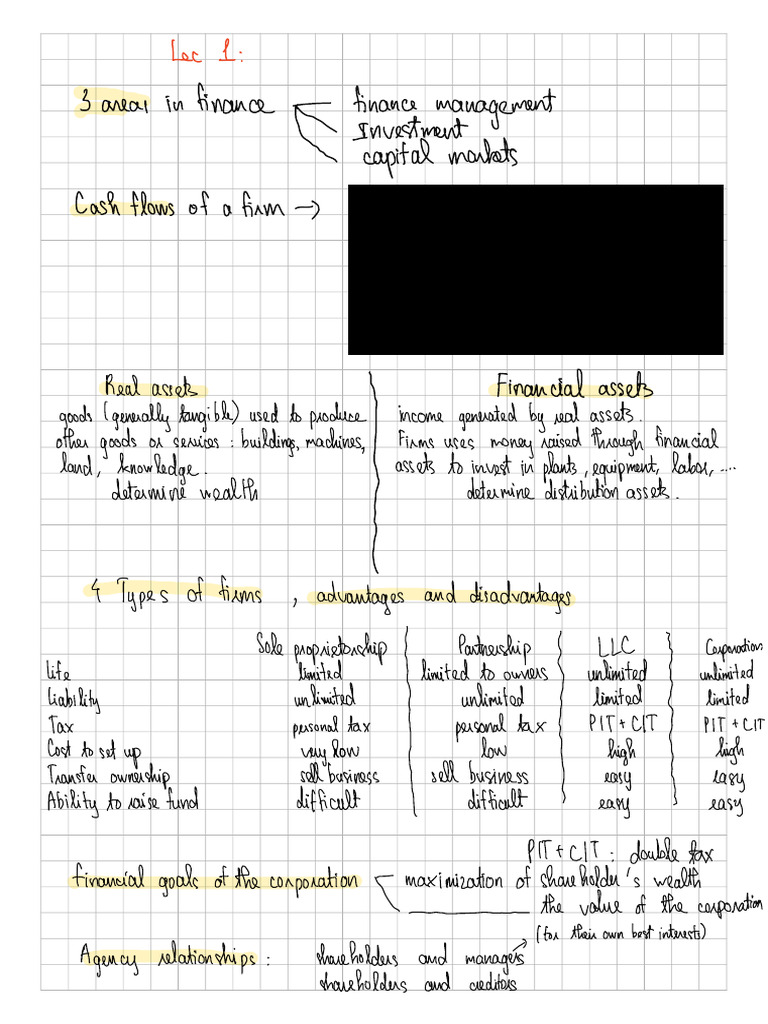 Lec 1:
3 areas in finance
finance management
Investment
capital markets
Cash flows of a firm →
Real assets
goods (generally tangible) used to produce
other goods or services : buildings, machines,
land, knowledge.
determine wealth
Financial assets
income generated by real assets.
Firms uses money raised through financial
assets to invest in plants, equipment, labor, ....
determine distribution assets.
4 Types of firms , advantages and disadvantages
Sole proprietorship Partnership LLC Corporation
life limited limited to owners unlimited unlimited
liability unlimited unlimited limited limited
Tax personal tax personal tax PIT + CIT PIT + CIT
Cost to set up very low low high high
Transfer ownership sell business sell business easy easy
Ability to raise fund difficult difficult easy easy
PIT + CIT : double tax
financial goals of the corporation
maximization of shareholder's wealth
the value of the corporation
(for their own best interests)
Agency relationships : shareholders and managers
shareholders and creditors